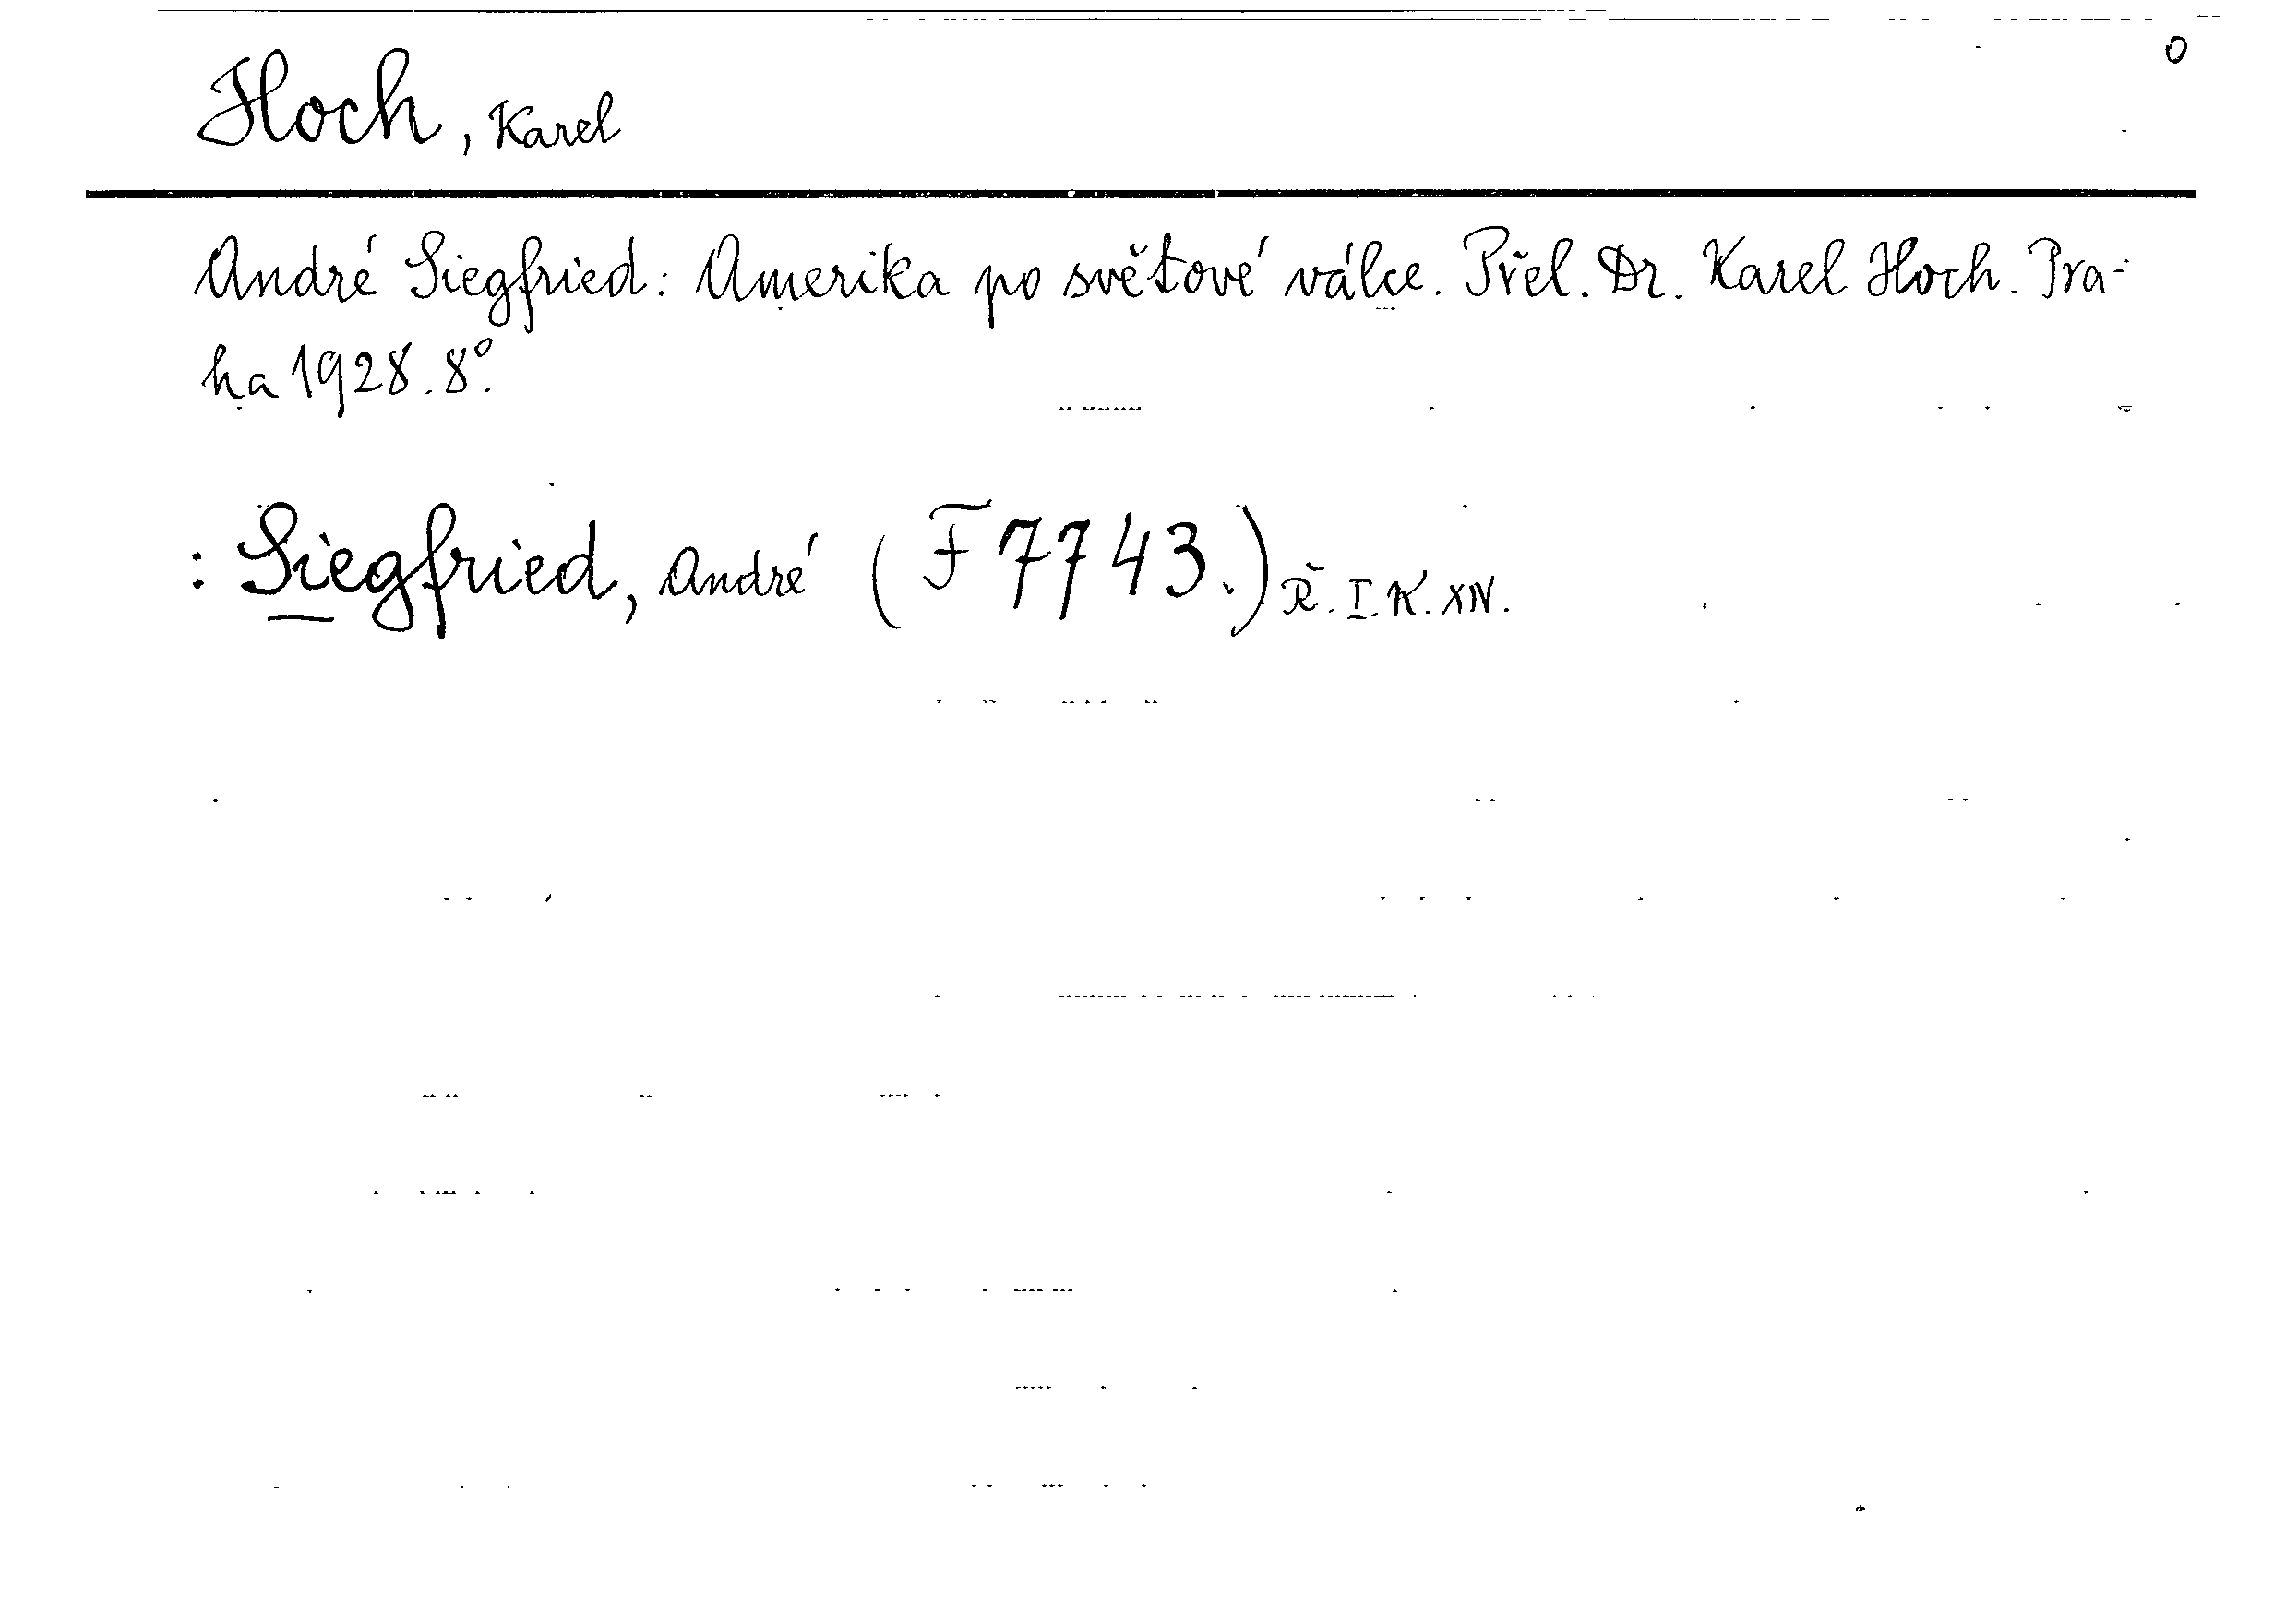 0
Hoch, Karel
André Siegfried: Amerika po světové válce. Přel. Dr. Karel Hoch. Pra-
ha 1928. 8°.
: Siegfried, André (F 7743.) Ř. I. K. XIV.